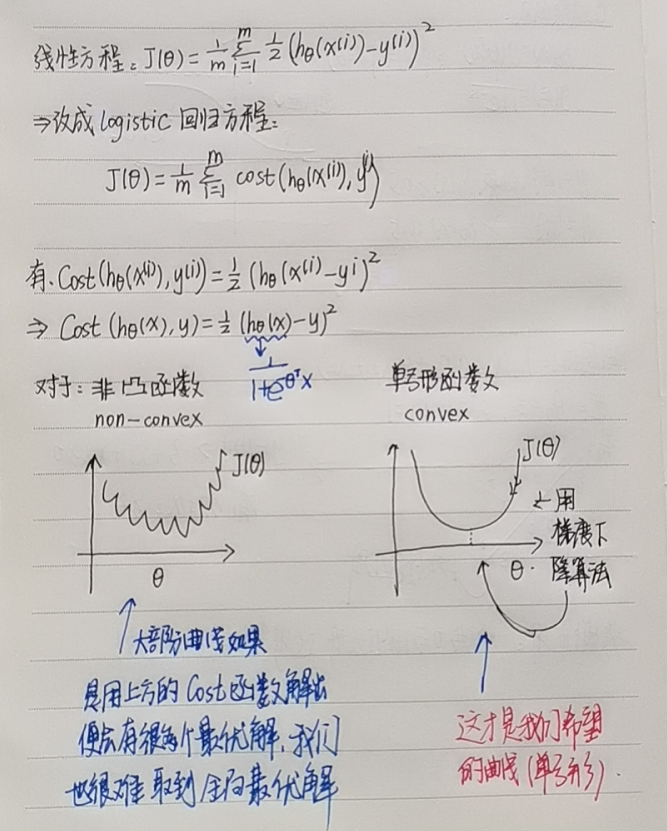 线性方程: J(θ)=1/m Σ_{i=1}^{m} 1/2 (hθ(x⁽ⁱ⁾)-y⁽ⁱ⁾)²
⇒改成logistic 回归方程:
J(θ)=1/m Σ_{i=1}^{m} cost(hθ(x⁽ⁱ⁾), yⁱ)
有. Cost(hθ(x⁽ⁱ⁾), y⁽ⁱ⁾)=1/2 (hθ(x⁽ⁱ⁾-yⁱ)²
⇒ Cost (hθ(x), y)=1/2 (hθ(x)-y)²
1/1+e^θᵀx
对于: 非凸函数
non-convex
单弓形函数
convex
J(θ)
θ
J(θ)
←用
梯度下
降算法
θ.
大部分曲线如果
是用上方的Cost函数解出
便会有很多个最优解,我们
也很难取到全局最优解
这才是我们希望
的曲线(单弓形).